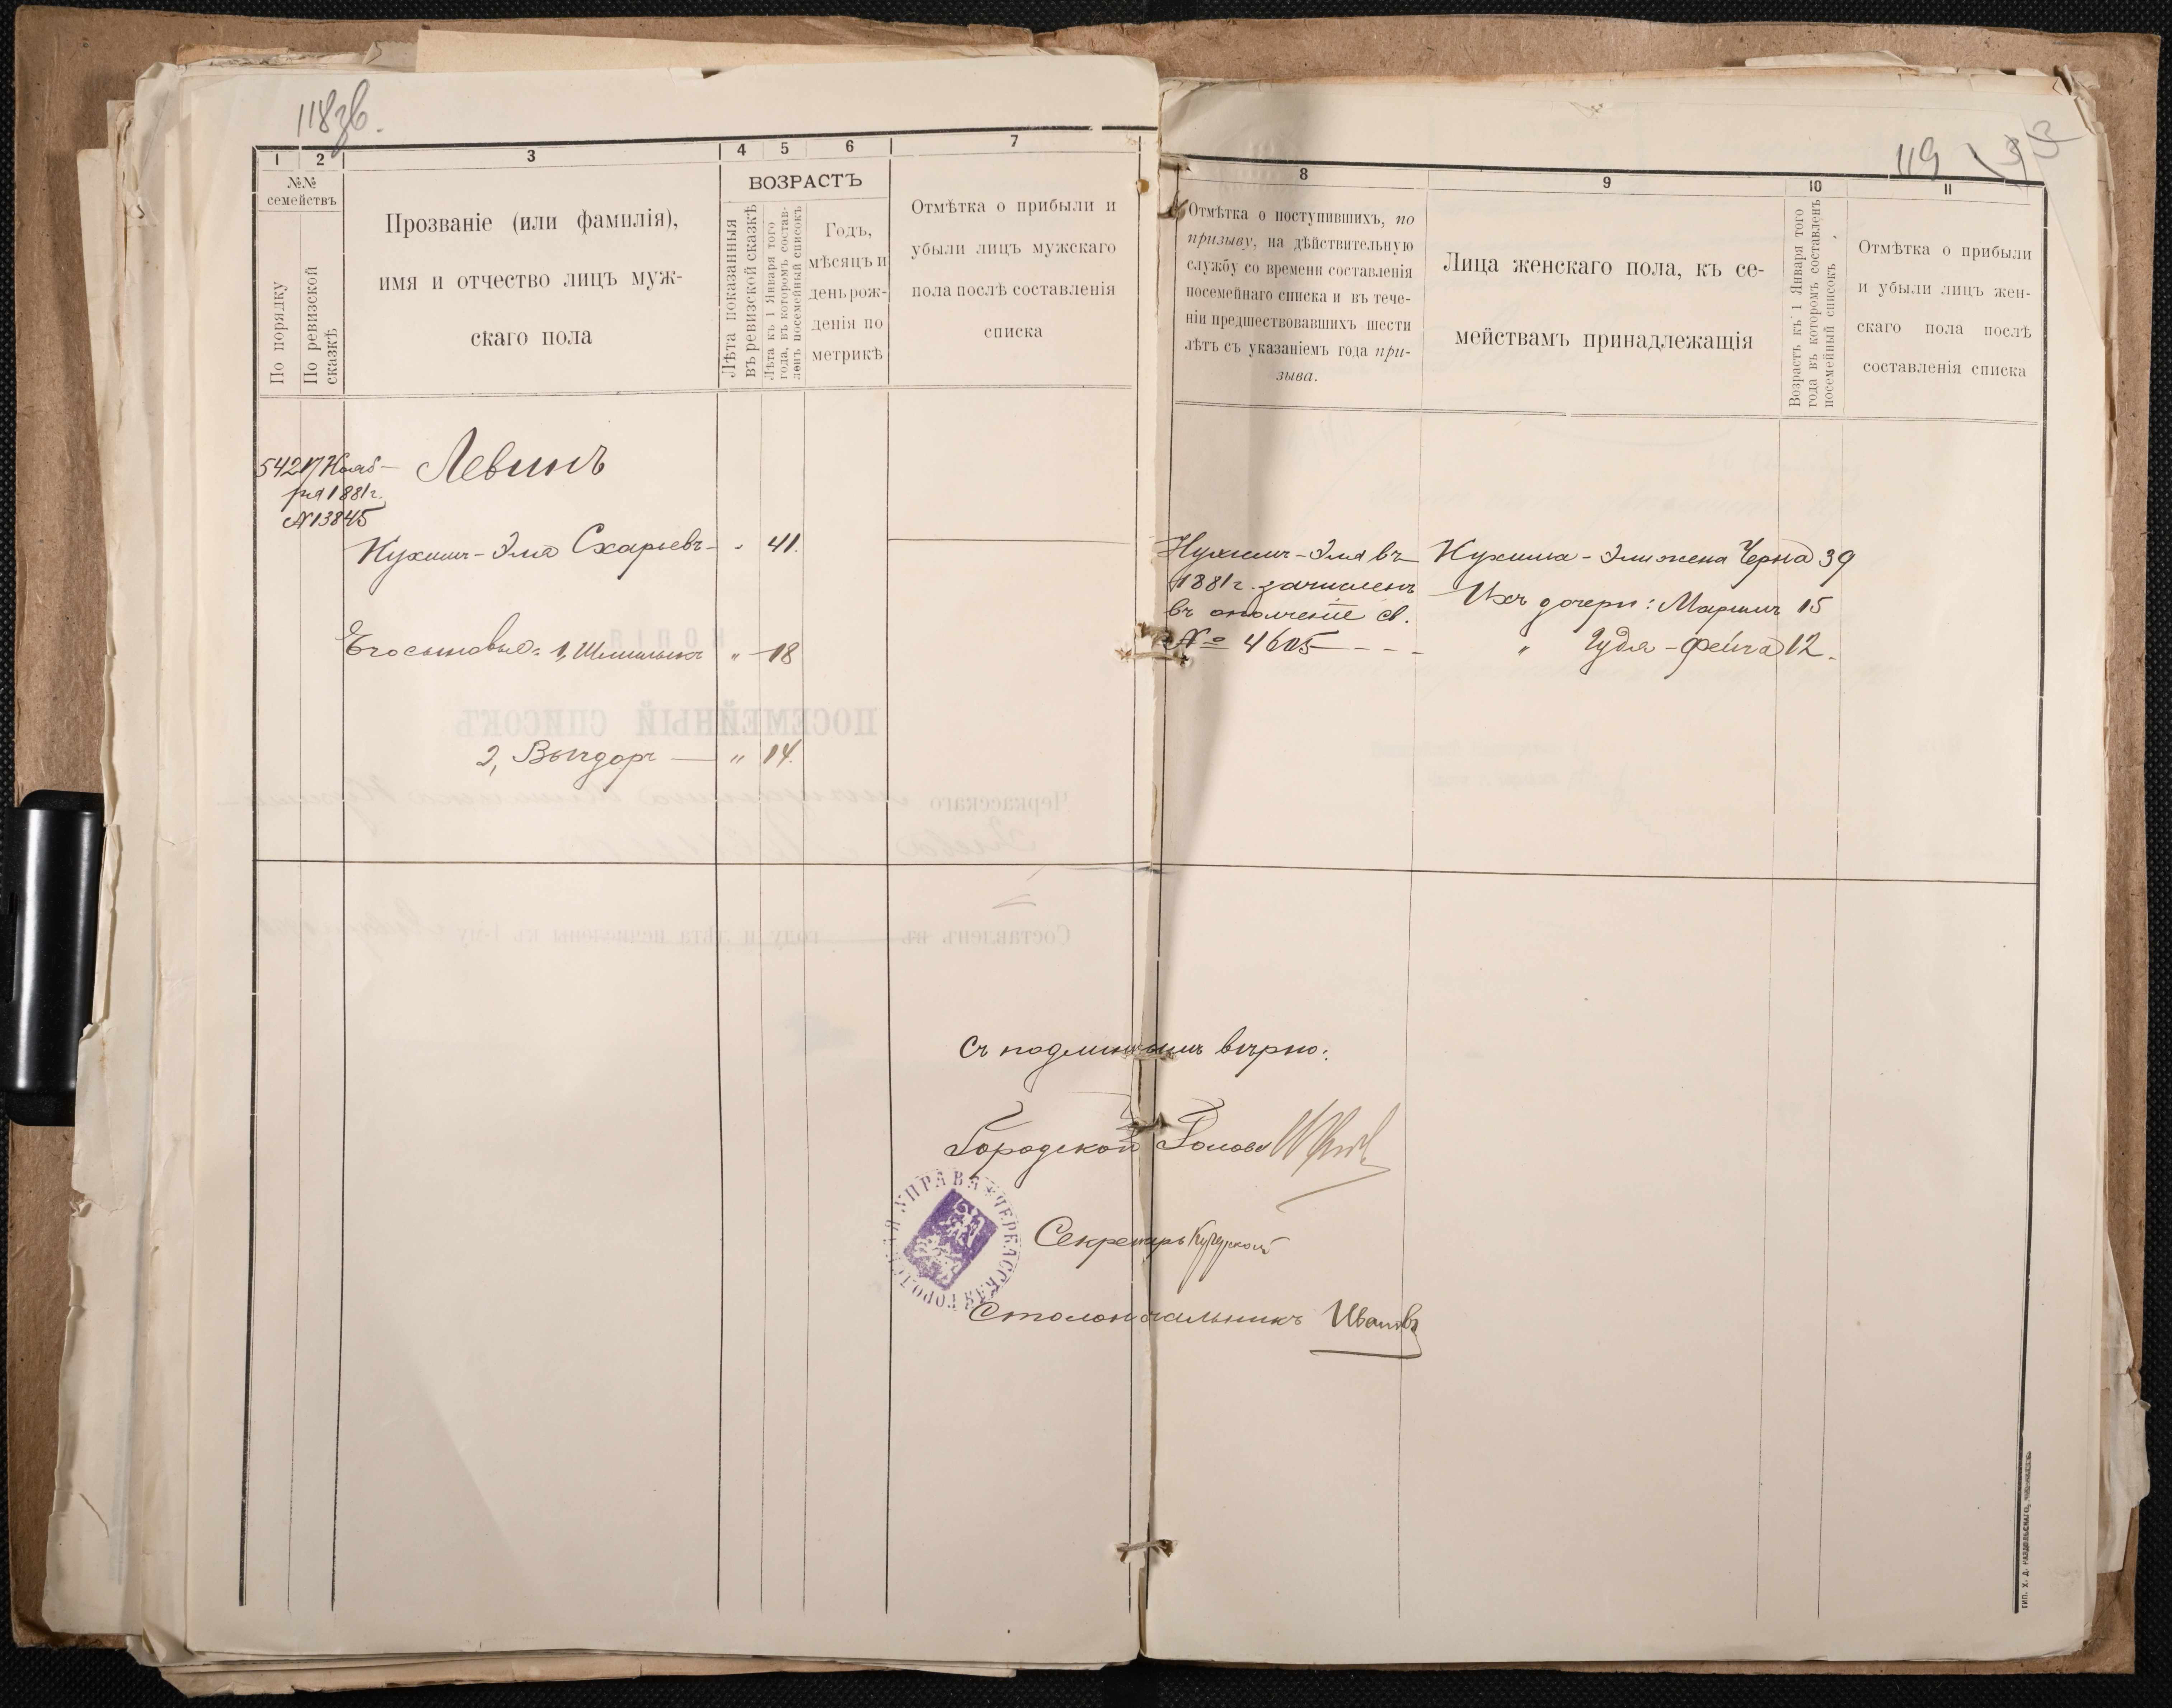 118зв.
1 2 3 4 5 6 7
№№ семействъ
По порядку
По ревизской сказкѣ
Прозваніе (или фамилія),
имя и отчество лицъ муж-
скаго пола
ВОЗРАСТЪ
Лѣта показанныя
въ ревизской сказкѣ
Лѣта къ 1 Января того
года, въ которомъ состав-
ленъ посемейный списокъ
Годъ,
мѣсяцъ и
день рож-
денія по
метрикѣ
Отмѣтка о прибыли и
убыли лицъ мужскаго
пола послѣ составленія
списка
542 17 Нояб-
ря 1881г.
№ 13845
Левинъ
Нухимъ-Эля Схарьевъ - " 41.
Его сыновья: 1, Шмилыкъ " 18
2, Выгдоръ — " 14.
119
8 9 10 11
Отмѣтка о поступившихъ, по
призыву, на дѣйствительную
службу со времени составленія
посемейнаго списка и въ тече-
ніи предшествовавшихъ шести
лѣтъ съ указаніемъ года при-
зыва.
Лица женскаго пола, къ се-
мействамъ принадлежащія
Возрастъ къ 1 Января того
года въ которомъ составленъ
посемейный списокъ
Отмѣтка о прибыли
и убыли лицъ жен-
скаго пола послѣ
составленія списка
Нухимъ-Эля въ
1881г. зачисленъ
въ ополченіе св.
№ 4605 - - -
Нухима-Эли жена Черна 39
Ихъ дочери: Маримъ 15
" Гудя-Фейга 12.
Съ подлиннымъ вѣрно:
Городской Голова
Секретарь
Столоначальникъ Ивановъ
ЧЕРКАССКАЯ ГОРОДСКАЯ УПРАВА
ТИП. Х. Д. РАЗДОЛЬСКАГО, ЧЕРКАССЫ.